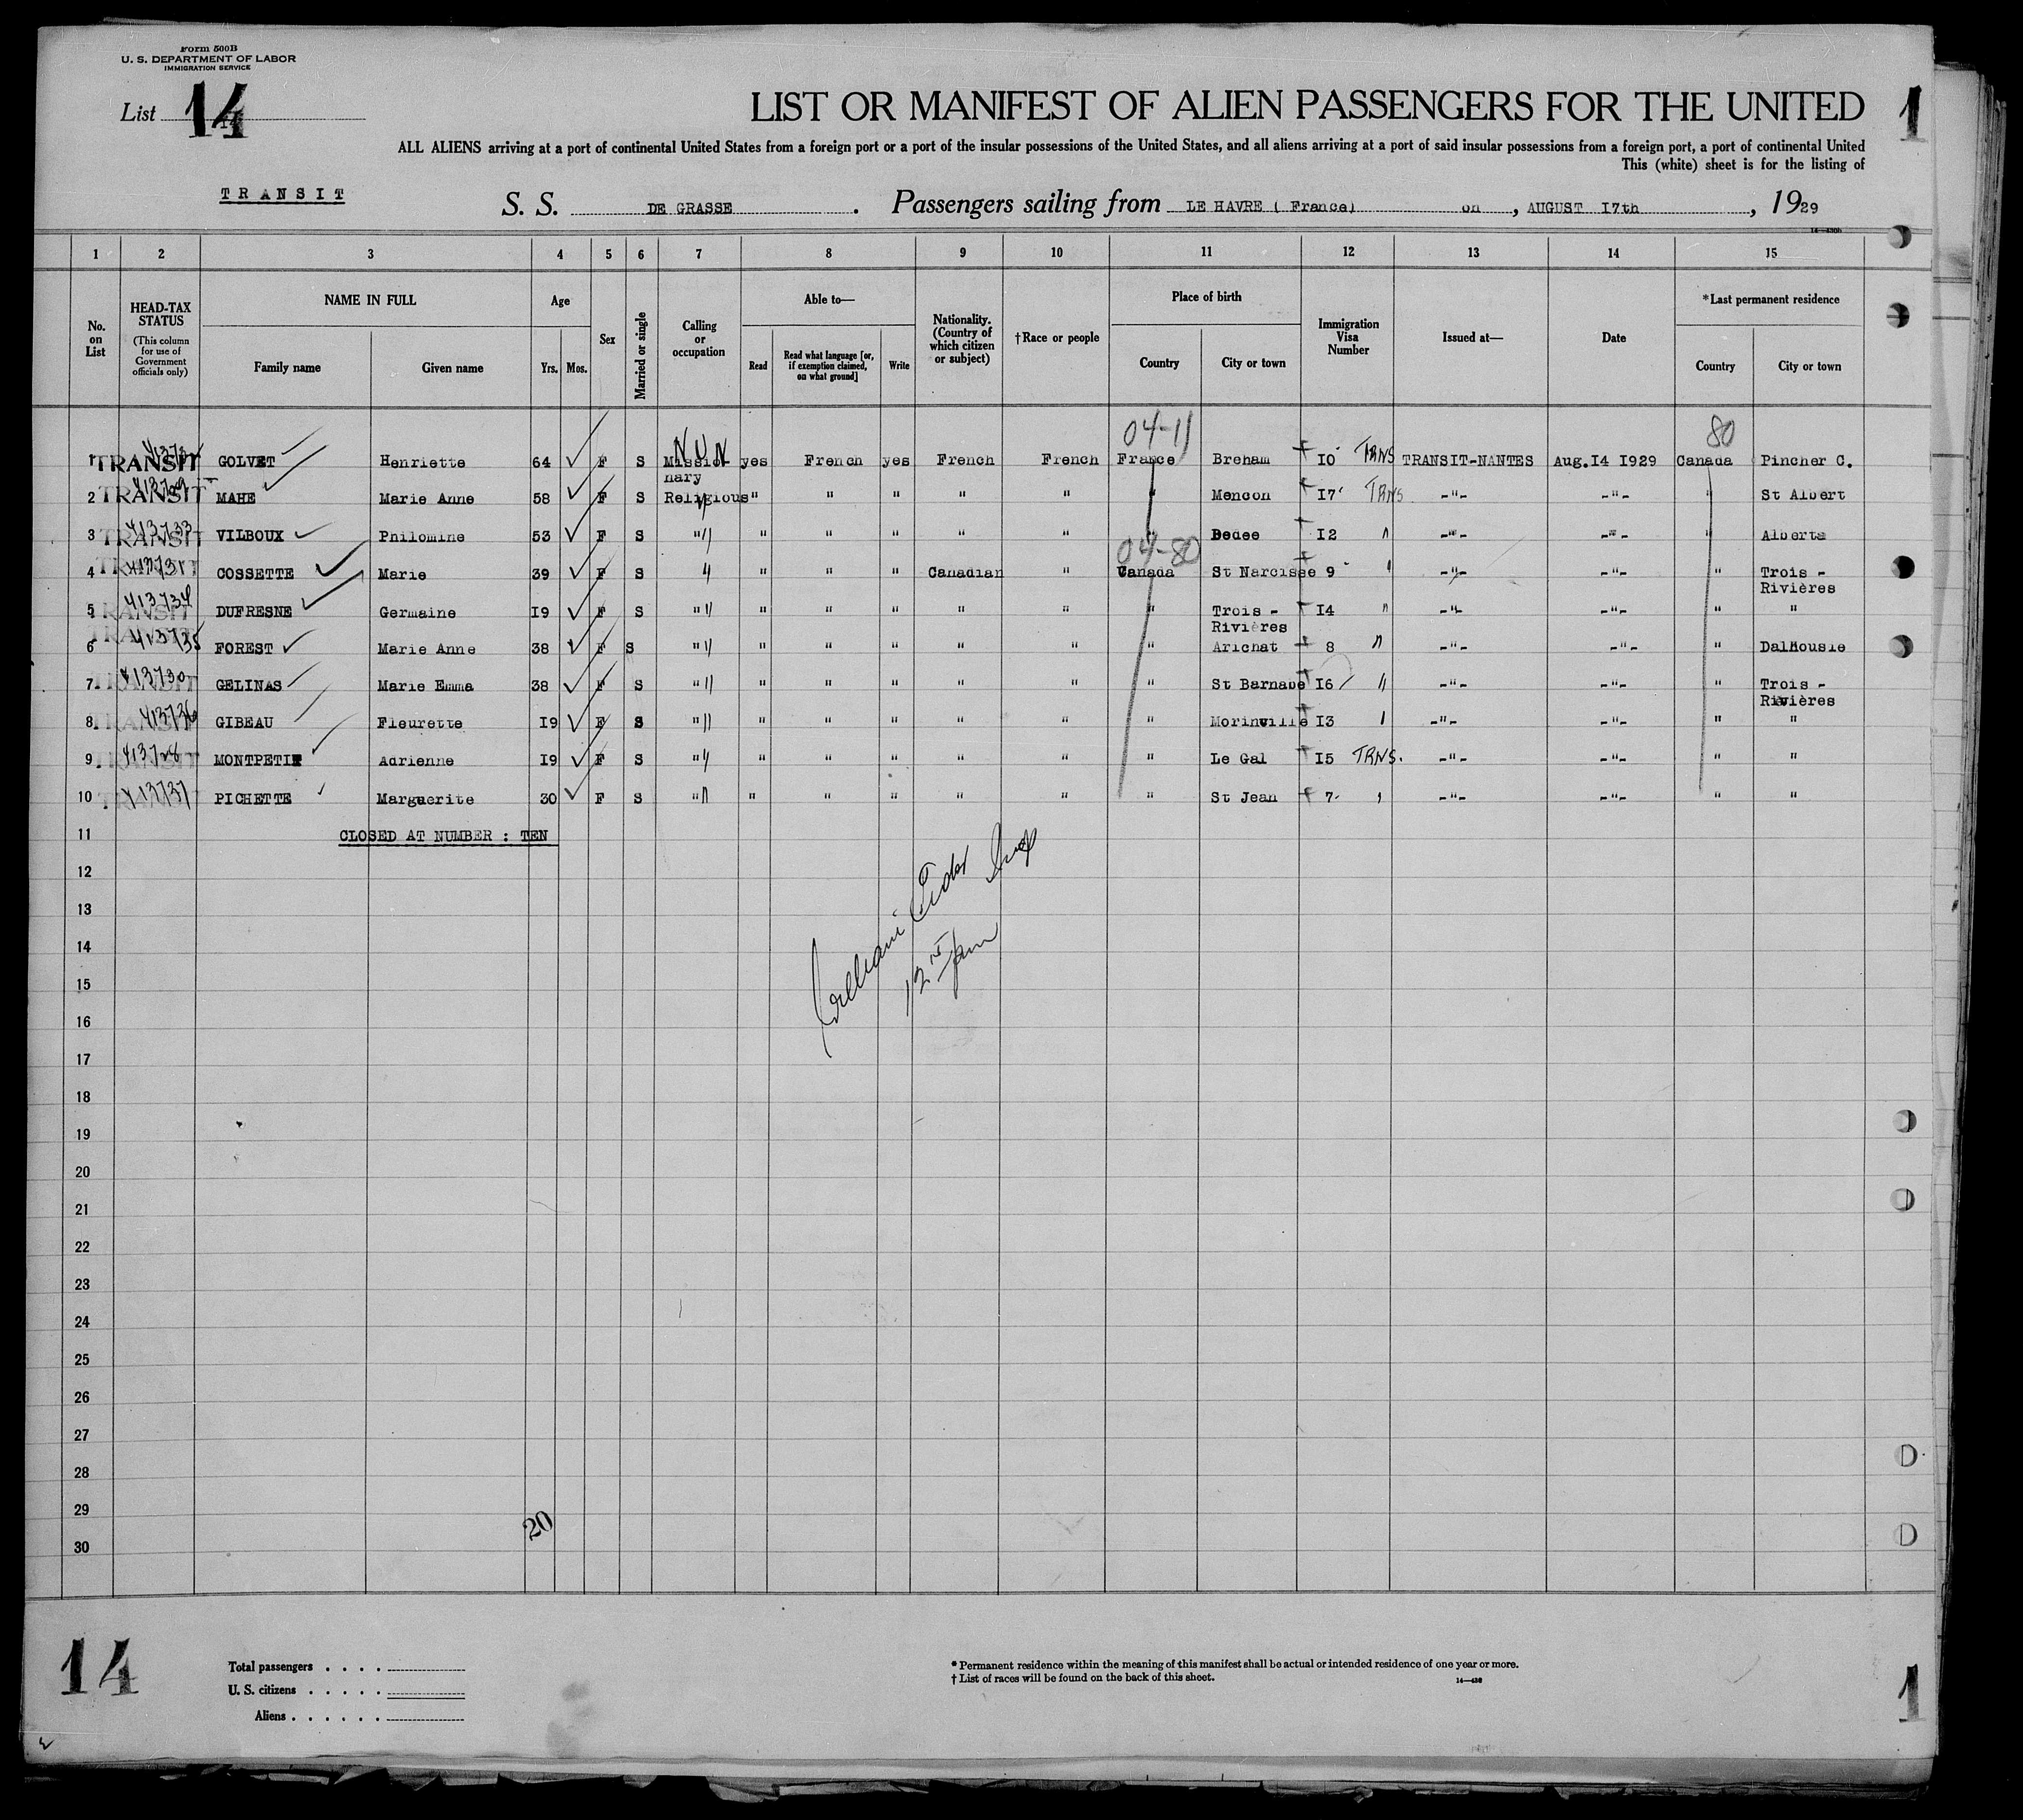 Form 500B
U. S. DEPARTMENT OF LABOR
IMMIGRATION SERVICE
List 14
LIST OR MANIFEST OF ALIEN PASSENGERS FOR THE UNITED
1
ALL ALIENS arriving at a port of continental United States from a foreign port or a port of the insular possessions of the United States, and all aliens arriving at a port of said insular possessions from a foreign port, a port of continental United
This (white) sheet is for the listing of
TRANSIT
S. S. DE GRASSE . Passengers sailing from LE HAVRE ( France) on , AUGUST 17th , 1929
1 2 3 4 5 6 7 8 9 10 11 12 13 14 15
No. on List
HEAD-TAX STATUS
(This column for use of Government officials only)
NAME IN FULL
Family name
Given name
Age
Yrs. Mos.
Sex
Married or single
Calling or occupation
Able to—
Read
Read what language [or, if exemption claimed, on what ground]
Write
Nationality. (Country of which citizen or subject)
†Race or people
Place of birth
Country
City or town
Immigration Visa Number
Issued at—
Date
*Last permanent residence
Country
City or town
NUN 04-11 80
1 TRANSIT GOLVET Henriette 64 F S Mission yes French yes French French France Breham 10 TRNS TRANSIT-NANTES Aug.14 1929 Canada Pincher C.
nary
2 TRANSIT MAHE Marie Anne 58 F S Religious " " " " " " Mencon 17 TRNS -"- -"- " St Albert
3 TRANSIT 413733 VILBOUX Philomine 53 F S " " " " " " " Dedee 12 " -"- -"- " Alberta
04-80
4 TRANSIT 413731 COSSETTE Marie 39 F S " " " " Canadian " Canada St Narcisse 9 " -"- -"- " Trois -
Rivières
5 TRANSIT 413734 DUFRESNE Germaine 19 F S " " " " " " " Trois - 14 " -"- -"- " "
Rivières
6 TRANSIT 413735 FOREST Marie Anne 38 F S " " " " " " " Arichat 8 " -"- -"- " Dalhousie
7 TRANSIT 413730 GELINAS Marie Emma 38 F S " " " " " " " St Barnabe 16 " -"- -"- " Trois -
Rivières
8 TRANSIT 413736 GIBEAU Fleurette 19 F S " " " " " " " Morinville 13 " -"- -"- " "
9 TRANSIT 413728 MONTPETIT Adrienne 19 F S " " " " " " " Le Gal 15 TRNS. -"- -"- " "
10 TRANSIT 413737 PICHETTE Marguerite 30 F S " " " " " " " St Jean 7 " -"- -"- " "
11 CLOSED AT NUMBER : TEN
12
13
14
15
16
17
18
19
20
21
22
23
24
25
26
27
28
29
20
30
14
Total passengers . . . .
U. S. citizens . . . . .
Aliens . . . . . .
* Permanent residence within the meaning of this manifest shall be actual or intended residence of one year or more.
† List of races will be found on the back of this sheet.
1